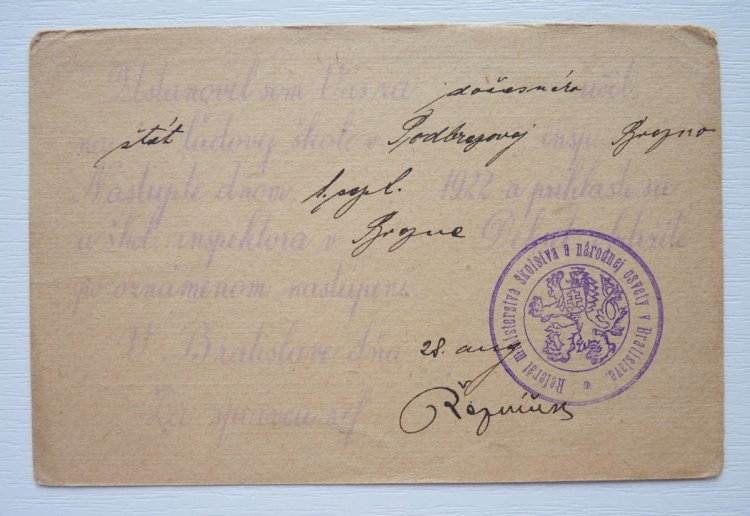 Ustanovil som Vás za dočasného učit.
na štát ľudovej škole v Podbrezovej insp. Brezno
Nastúpte dňom 1. sept. 1922 a prihláste sa
u škol. inspektora v Brezne Dekrét
po oznámenom nastúpení.
V Bratislave dňa 28. aug
Za správcu ref.
Referát ministerstva školstva a národnej osvety v Bratislave.